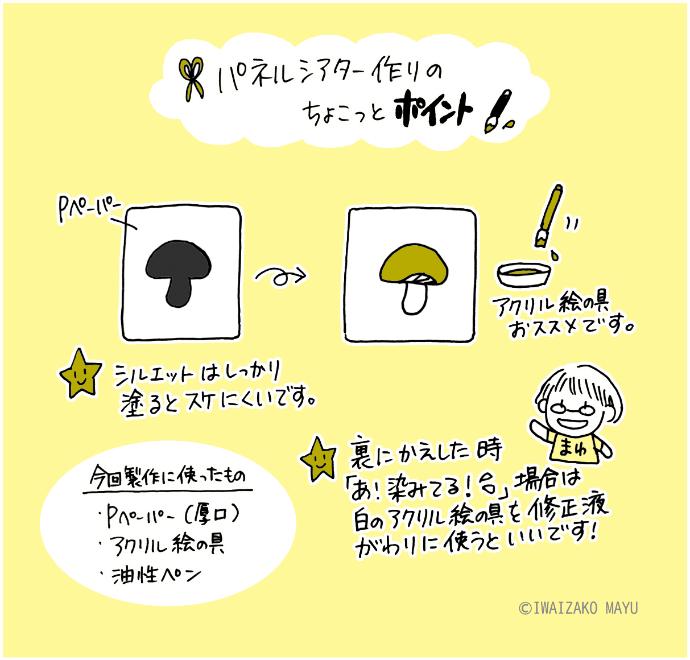 パネルシアター作りの
ちょこっとポイント
Pペーパー
アクリル絵の具
おススメです。
シルエットはしっかり
塗るとスケにくいです。
まゆ
裏にかえした時
「あ!染みてる!」場合は
白のアクリル絵の具を修正液
がわりに使うといいです!
今回製作に使ったもの
・Pペーパー(厚口)
・アクリル絵の具
・油性ペン
©IWAIZAKO MAYU